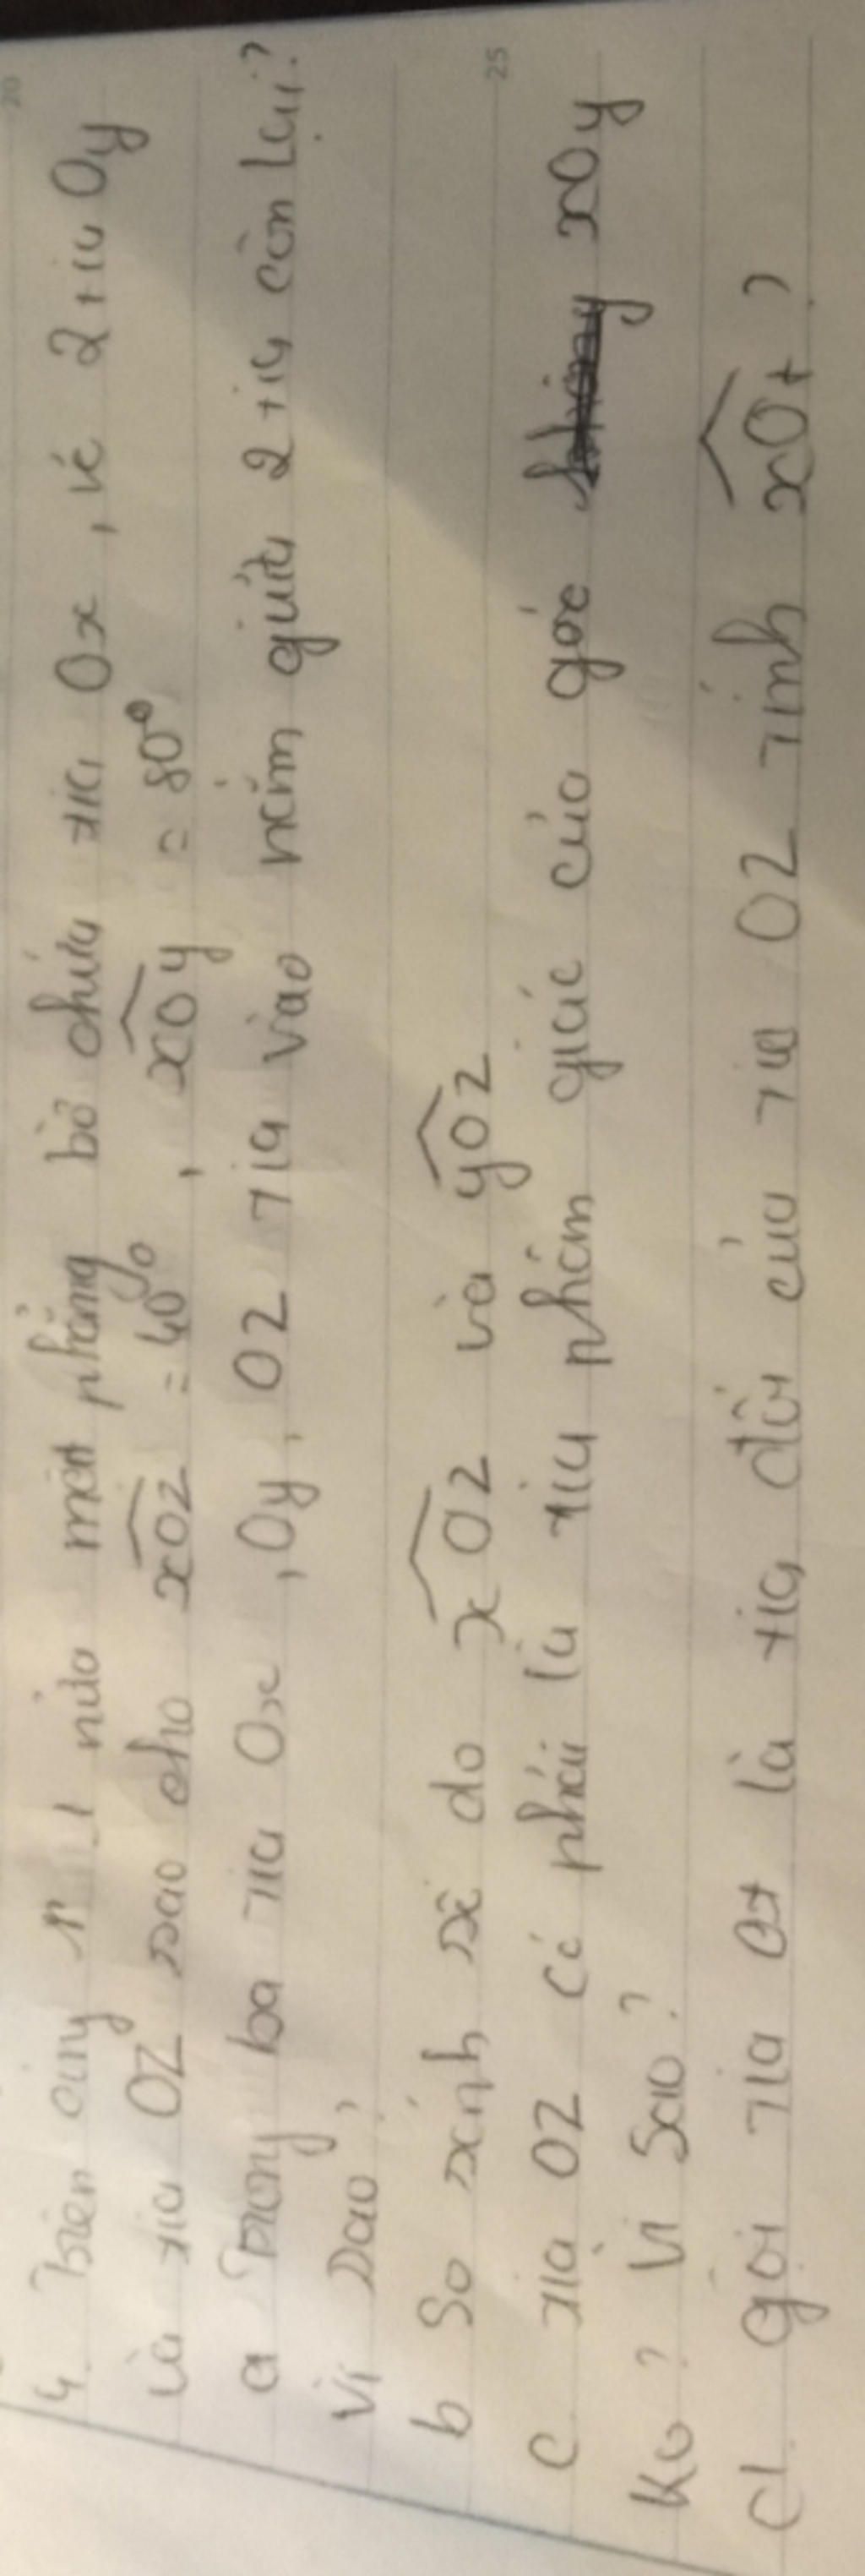 4. Trên cùng 1 nửa mặt phẳng bờ chứa tia Ox, vẽ 2 tia Oy
và tia Oz sao cho xOz = 40°, xOy = 80°
a Trong ba tia Ox, Oy, Oz tia vào nằm giữa 2 tia còn lại?
Vì sao?
b So sánh số đo xOz và yOz
25
c tia Oz có phải là tia phâm giác của góc xOy
Ko? Vì Sao?
d. gọi tia Ot là tia đối của tia Oz tính xOt?
20